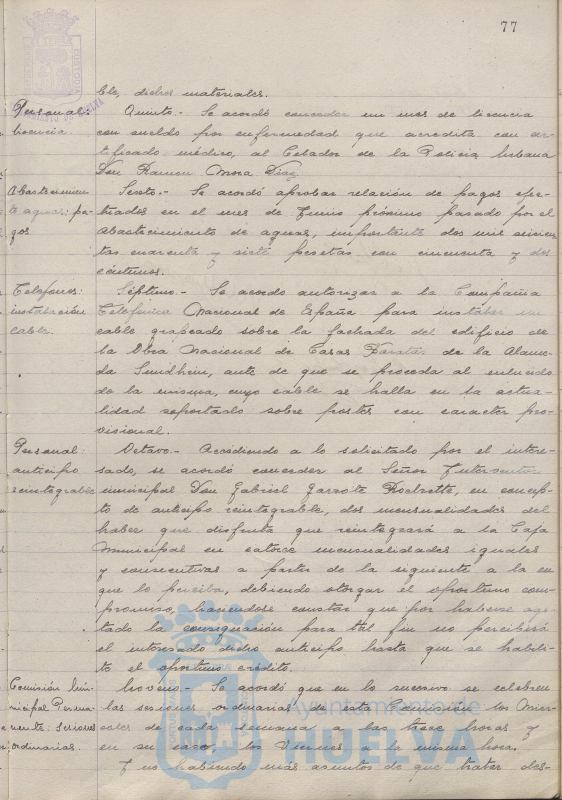 77
ble, dichos materiales.
Personal: licencia.
Quinto.- Se acordó conceder un mes de licencia
con sueldo por enfermedad que acredita con cer-
tificado médico, al Celador de la Policia Urbana
Don Ramon Mora Diaz.
Abastecimien-
to aguas: pa-
gos
Sexto.- Se acordó aprobar relación de pagos efec-
tuados en el mes de Junio próximo pasado por el
abastecimiento de aguas, importante dos mil seiscien-
tas cuarenta y siete pesetas con cincuenta y dos
céntimos.
Telefonos:
instalación
cable.
Séptimo.- Se acordo autorizar a la Compañia
Telefónica Nacional de España para instalar un
cable grapeado sobre la fachada del edificio de
la Obra Nacional de Casas Baratas de la Alame-
da Sundheim, ante de que se proceda al enlucido
de la misma, cuyo cable se halla en la actua-
lidad soportado sobre postes con caracter pro-
visional.
Personal:
anticipo
reintegrable
Octavo.- Accediendo a lo solicitado por el intere-
sado, se acordó conceder al Señor Interventor
municipal Don Gabriel Garrote, en concep-
to de anticipo reintegrable, dos mensualidades del
haber que disfruta que reintegrará a la Caja
Municipal en catorce mensualidades iguales
y consecutivas a partir de la siguiente a la en
que lo perciba, debiendo otorgar el oportuno com-
promiso, haciendose constar que por haberse ago-
tado la consignación para tal fin no percibirá
el interesado dicho anticipo hasta que se habili-
te el oportuno crédito.
Comisión Mu-
nicipal Perma-
nente: sesiones
ordinarias.
Noveno.- Se acordó que en lo sucesivo se celebren
las sesiones ordinarias de esta Comisión los Miér-
coles de cada semana a las trece horas y
en su caso, los Viernes a la misma hora.
Y no habiendo más asuntos de que tratar des-
Ayuntamiento de
HUELVA